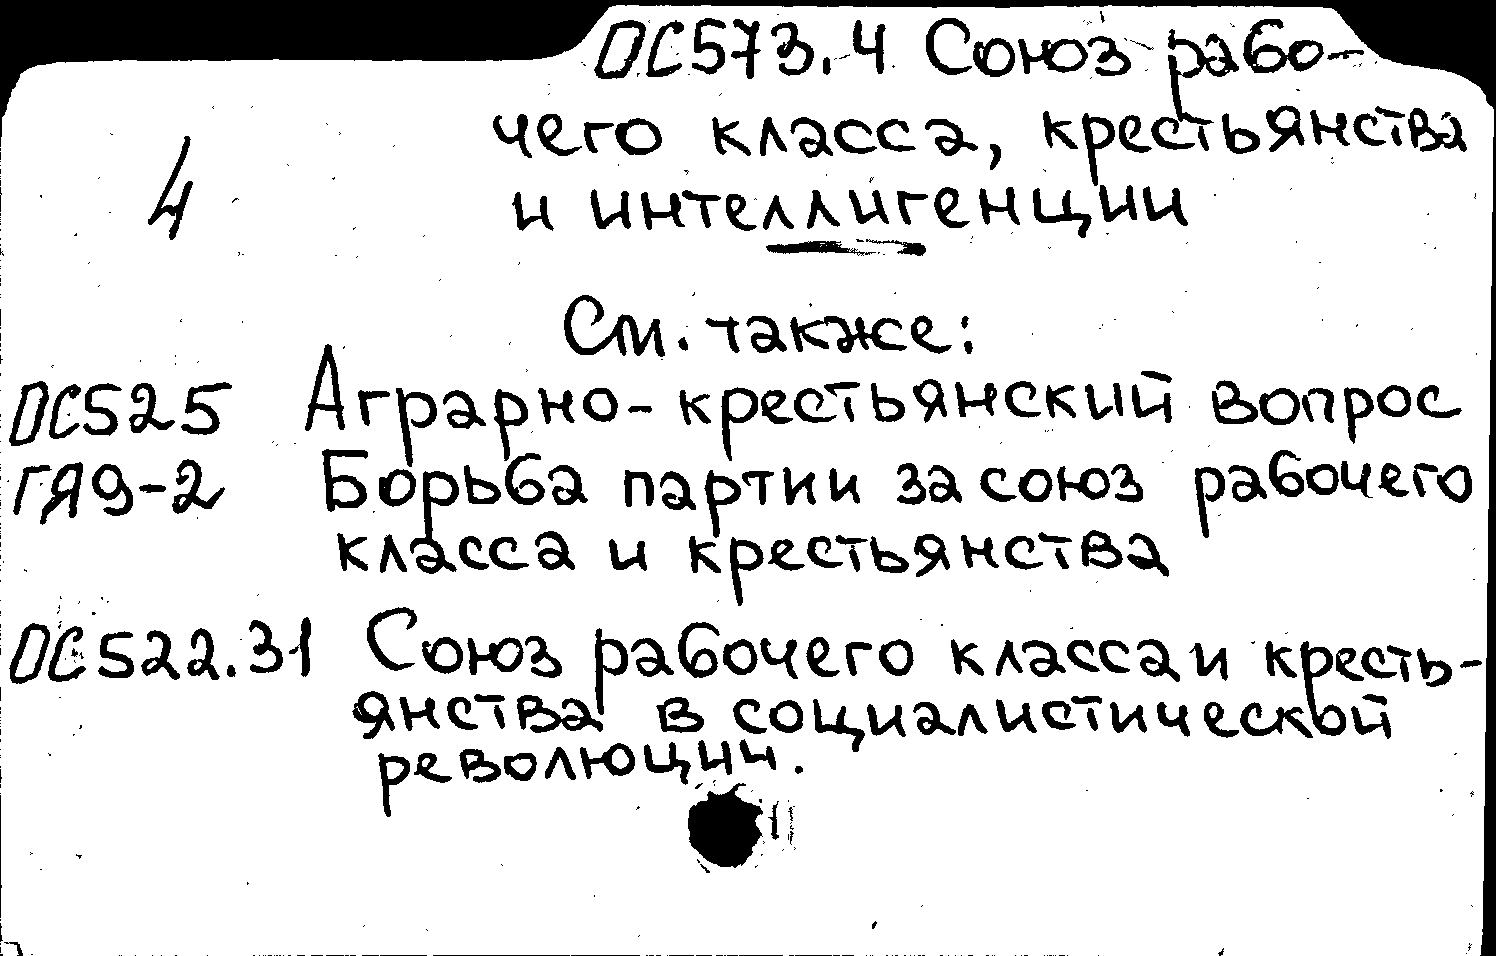 ПС573.4 Союз рабо-
чего класса, крестьянства
4
и интеллигенции
См. также:
ПС525 Аграрно-крестьянский вопрос
ГЯ9-2 Борьба партии за союз рабочего
класса и крестьянства
ПС522.31 Союз рабочего класса и кресть-
янства в социалистической
революции.